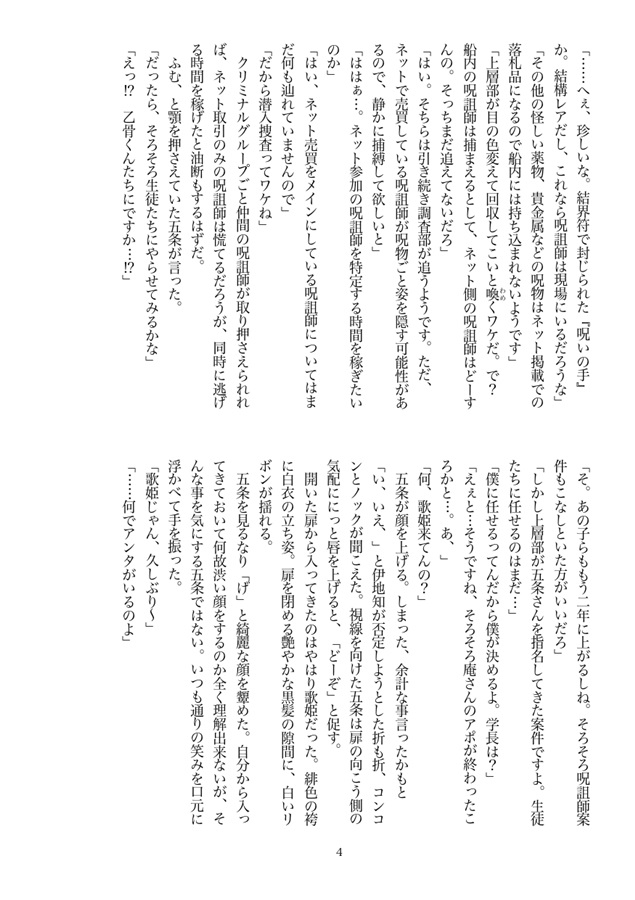 「……へぇ、珍しいな。結界符で封じられた『呪いの手』
か。結構レアだし、これなら呪詛師は現場にいるだろうな」
「その他の怪しい薬物、貴金属などの呪物はネット掲載での
落札品になるので船内には持ち込まれないようです」
「上層部が目の色変えて回収してこいと喚くワケだ。で？
船内の呪詛師は捕まえるとして、ネット側の呪詛師はどーす
んの。そっちまだ追えてないだろ」
「はい。そちらは引き続き調査部が追うようです。ただ、
ネットで売買している呪詛師が呪物ごと姿を隠す可能性があ
るので、静かに捕縛して欲しいと」
「ははぁ…。ネット参加の呪詛師を特定する時間を稼ぎたい
のか」
「はい、ネット売買をメインにしている呪詛師についてはま
だ何も辿れていませんので」
「だから潜入捜査ってワケね」
　クリミナルグループごと仲間の呪詛師が取り押さえられれ
ば、ネット取引のみの呪詛師は慌てるだろうが、同時に逃げ
る時間を稼げたと油断もするはずだ。
　ふむ、と顎を押さえていた五条が言った。
「だったら、そろそろ生徒たちにやらせてみるかな」
「えっ!?　乙骨くんたちにですか…!?」
「そ。あの子らももう二年に上がるしね。そろそろ呪詛師案
件もこなしといた方がいいだろ」
「しかし上層部が五条さんを指名してきた案件ですよ。生徒
たちに任せるのはまだ…」
「僕に任せるってんだから僕が決めるよ。学長は？」
「えぇと…そうですね、そろそろ庵さんのアポが終わったこ
ろかと…。あ、」
「何、歌姫来てんの？」
　五条が顔を上げる。しまった、余計な事言ったかもと
「い、いえ、」と伊地知が否定しようとした折も折、コンコ
ンとノックが聞こえた。視線を向けた五条は扉の向こう側の
気配ににっと唇を上げると、「どーぞ」と促す。
　開いた扉から入ってきたのはやはり歌姫だった。緋色の袴
に白衣の立ち姿。扉を閉める艶やかな黒髪の隙間に、白いリ
ボンが揺れる。
　五条を見るなり「げ」と綺麗な顔を顰めた。自分から入っ
てきておいて何故渋い顔をするのか全く理解出来ないが、そ
んな事を気にする五条ではない。いつも通りの笑みを口元に
浮かべて手を振った。
「歌姫じゃん、久しぶり〜」
「……何でアンタがいるのよ」
4